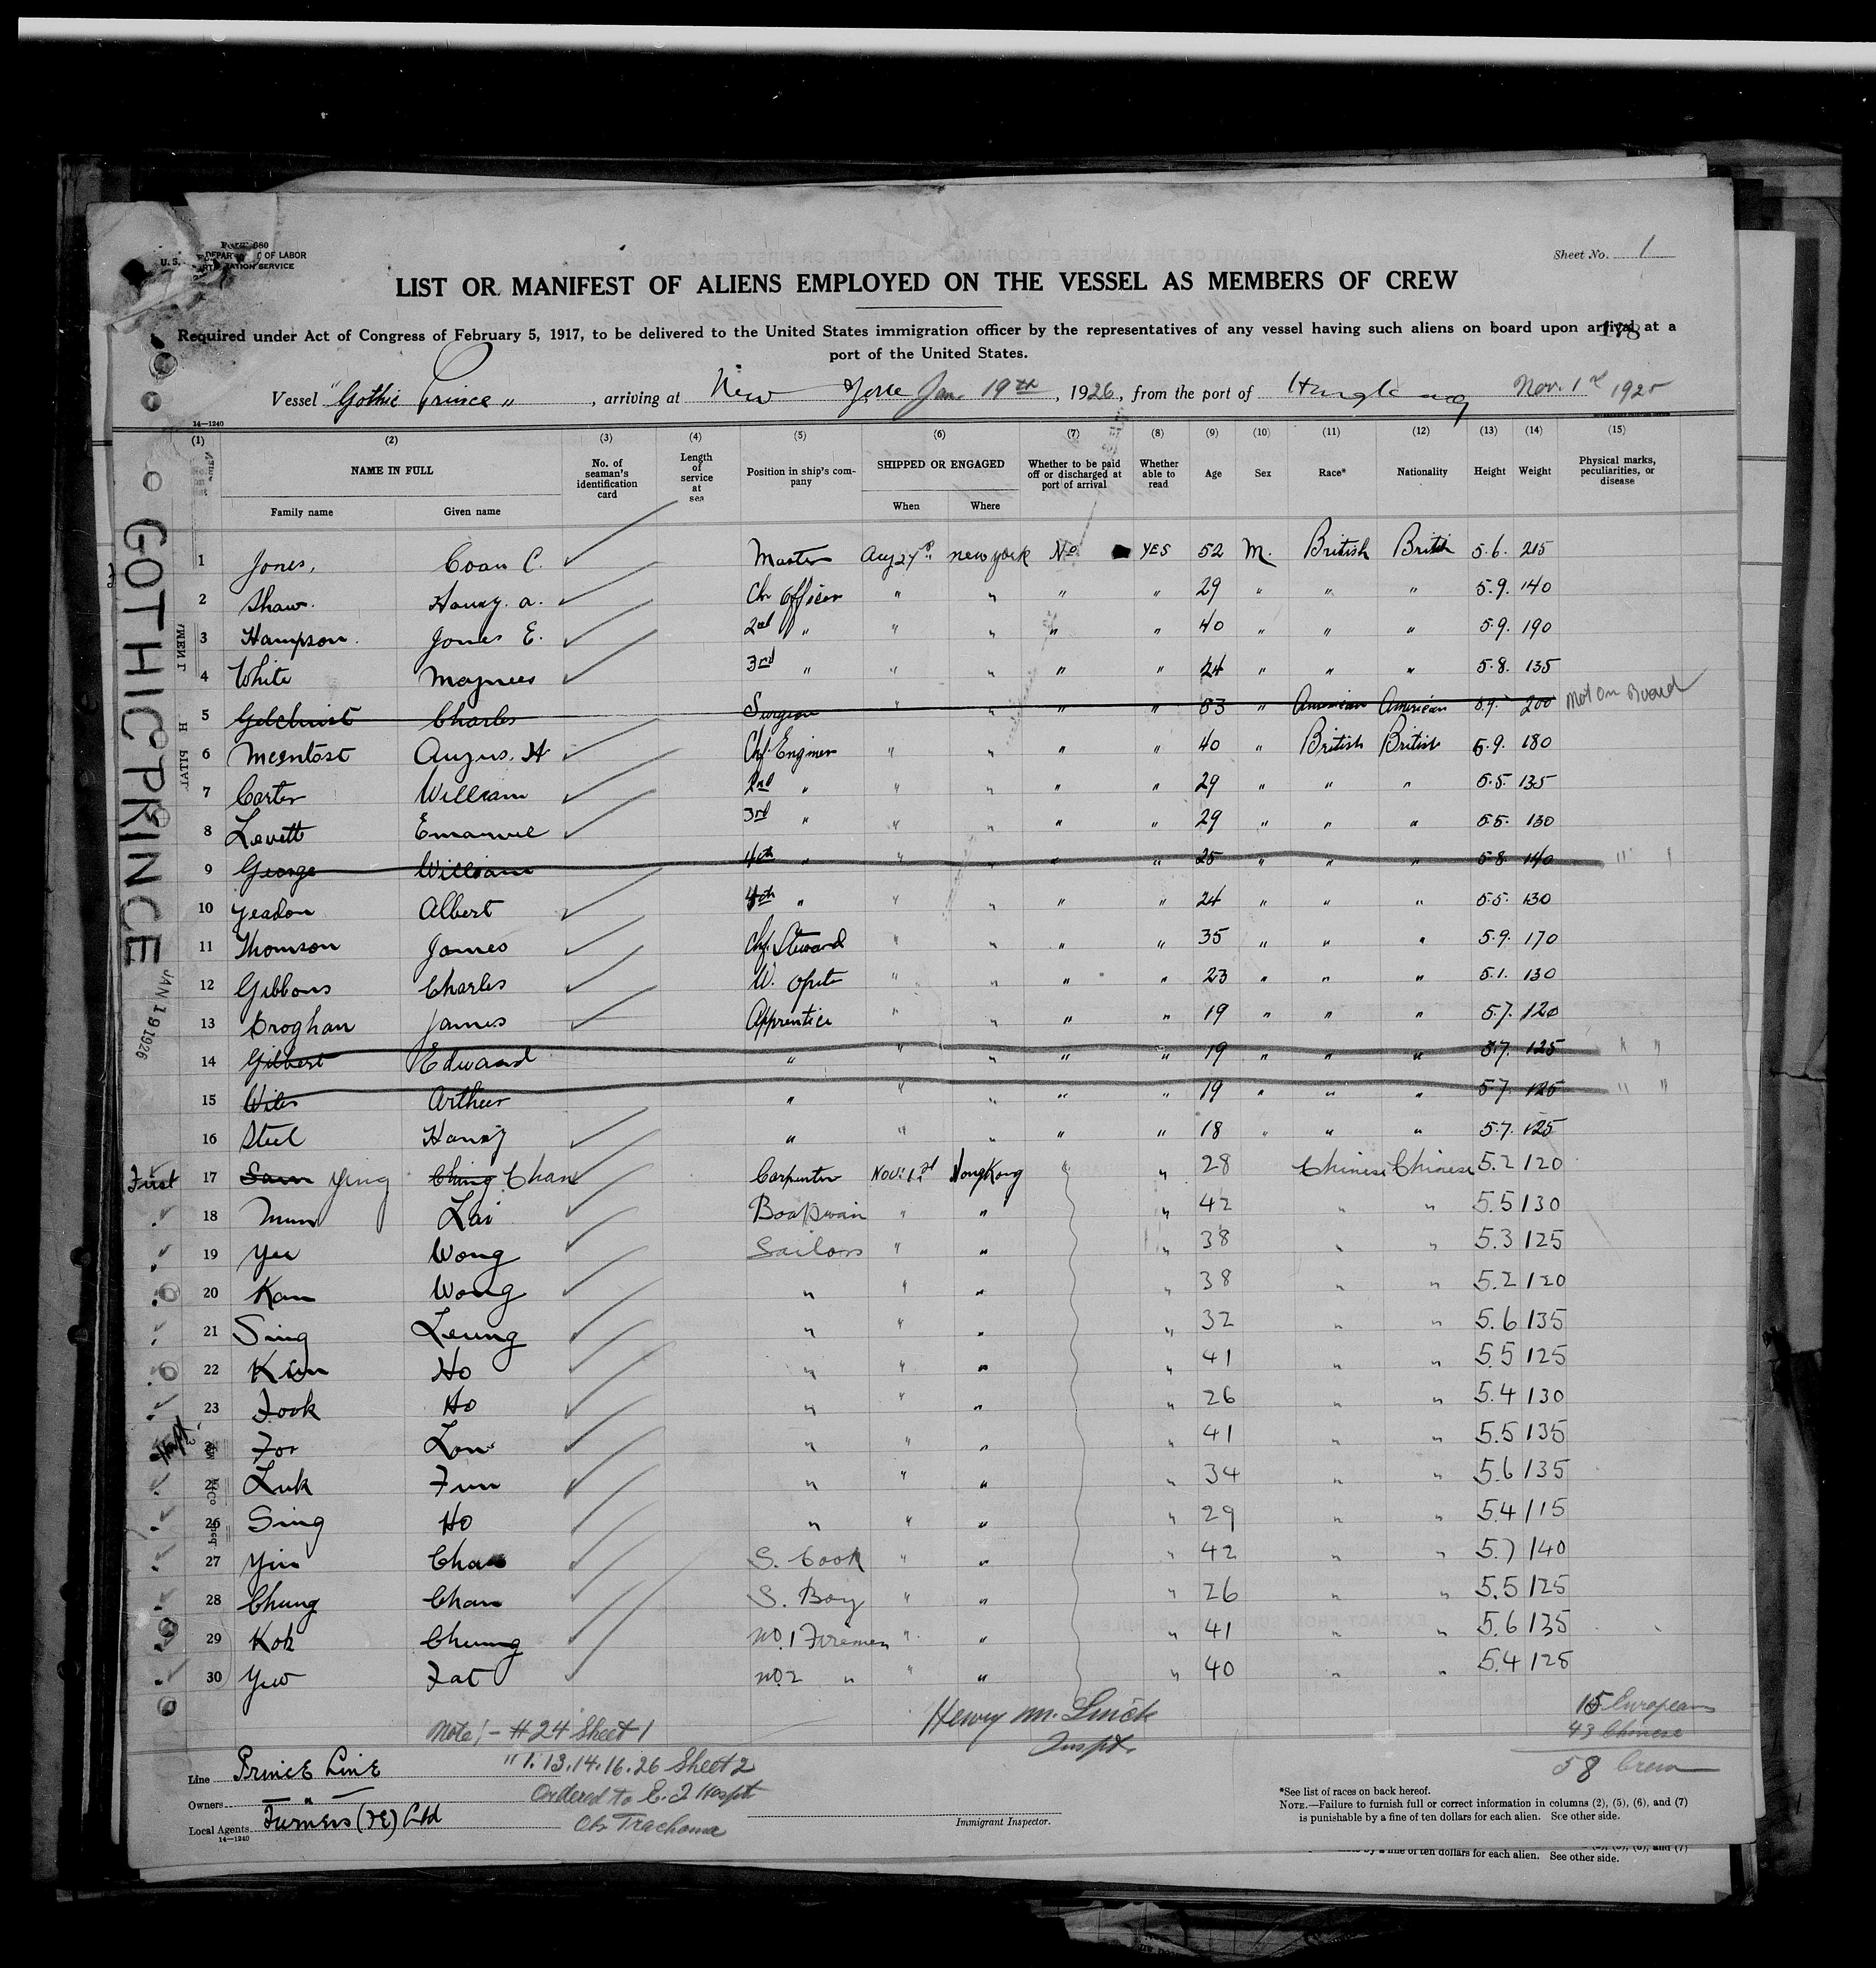 FORM 680
U. S. DEPARTMENT OF LABOR
IMMIGRATION SERVICE
Sheet No. 1
LIST OR MANIFEST OF ALIENS EMPLOYED ON THE VESSEL AS MEMBERS OF CREW
Required under Act of Congress of February 5, 1917, to be delivered to the United States immigration officer by the representatives of any vessel having such aliens on board upon arrival at a
178
port of the United States.
Vessel "Gothic Prince", arriving at New York Jan. 19th, 1926, from the port of Hongkong Nov. 1st 1925
14—1240
(1) (2) (3) (4) (5) (6) (7) (8) (9) (10) (11) (12) (13) (14) (15)
NAME IN FULL No. of seaman's identification card Length of service at sea Position in ship's company SHIPPED OR ENGAGED Whether to be paid off or discharged at port of arrival Whether able to read Age Sex Race* Nationality Height Weight Physical marks, peculiarities, or disease
Family name Given name When Where
1 Jones, Coan C. Master Aug 27th New York No YES 52 M. British British 5.6. 215
2 Shaw. Harry. a. Ch Officer " " " " 29 " " " 5.9. 140
3 Hampson. James E. 2nd " " " " " 40 " " " 5.9. 190
4 White 3rd " " " " " 24 " " " 5.8. 135
5 Gilchrist Charles Surgeon " " " " 53 " American American 5.9. 200 Not on Board
6 McIntost Angus. H Chf Enginer " " " " 40 " British British 5.9. 180
7 Carter William 2nd " " " " " 29 " " " 5.5. 135
8 Levett Emanuel 3rd " " " " " 29 " " " 5.5. 130
9 George William 4th " " " " " 25 " " " 5.8. 140 " "
10 Yeadon Albert 4th " " " " " 24 " " " 5.5. 130
11 Thomson James Chf. Steward " " " " 35 " " " 5.9. 170
12 Gibbons Charles W. Opte " " " " 23 " " " 5.1. 130
13 Croghan James Apprentice " " " " 19 " " " 5.7. 120
14 Gilbert Edward " " " " " 19 " " " 5.7. 125 " "
15 Wiles Arthur " " " " " 19 " " " 5.7. 125 " "
16 Steel Harry " " " " " 18 " " " 5.7. 125
First 17 Sam Ying Ching Chan Carpenter Nov. 1st HongKong " " 28 Chinese Chinese 5.2 120
18 Mun Lai Boatswain " " " 42 " " 5.5 130
19 Yee Wong Sailors " " " 38 " " 5.3 125
20 Kan Wong " " " " 38 " " 5.2 120
21 Sing Leung " " " " 32 " " 5.6 135
22 Kun Ho " " " " 41 " " 5.5 125
23 Fook Ho " " " 26 " " 5.4 130
Hospt. 24 For Lou " " " " 41 " " 5.5 135
25 Luk Fun " " " " 34 " " 5.6 135
26 Sing Ho " " " " 29 " " 5.4 115
27 Yin Chan S. Cook " " " 42 " " 5.7 140
28 Chung Chan S. Boy " " " 26 " " 5.5 125
29 Kok Cheung No. 1 Firemen " " " 41 " " 5.6 135
30 Yew Fat No. 2 " " " " 40 " " 5.4 128
GOTHIC PRINCE
JAN 19 1926
Henry M. Linck
Inspt.
15 European
43 Chinese
58 Crew
Note! - #24 Sheet 1
" 1. 13. 14. 16. 26 Sheet 2
Ordered to E. I Hospt
Cts Trachoma
Line Prince Line
Owners "
Local Agents Furness (&) Ltd
14—1240
Immigrant Inspector.
*See list of races on back hereof.
NOTE.—Failure to furnish full or correct information in columns (2), (5), (6), and (7)
is punishable by a fine of ten dollars for each alien. See other side.
by a fine of ten dollars for each alien. See other side.